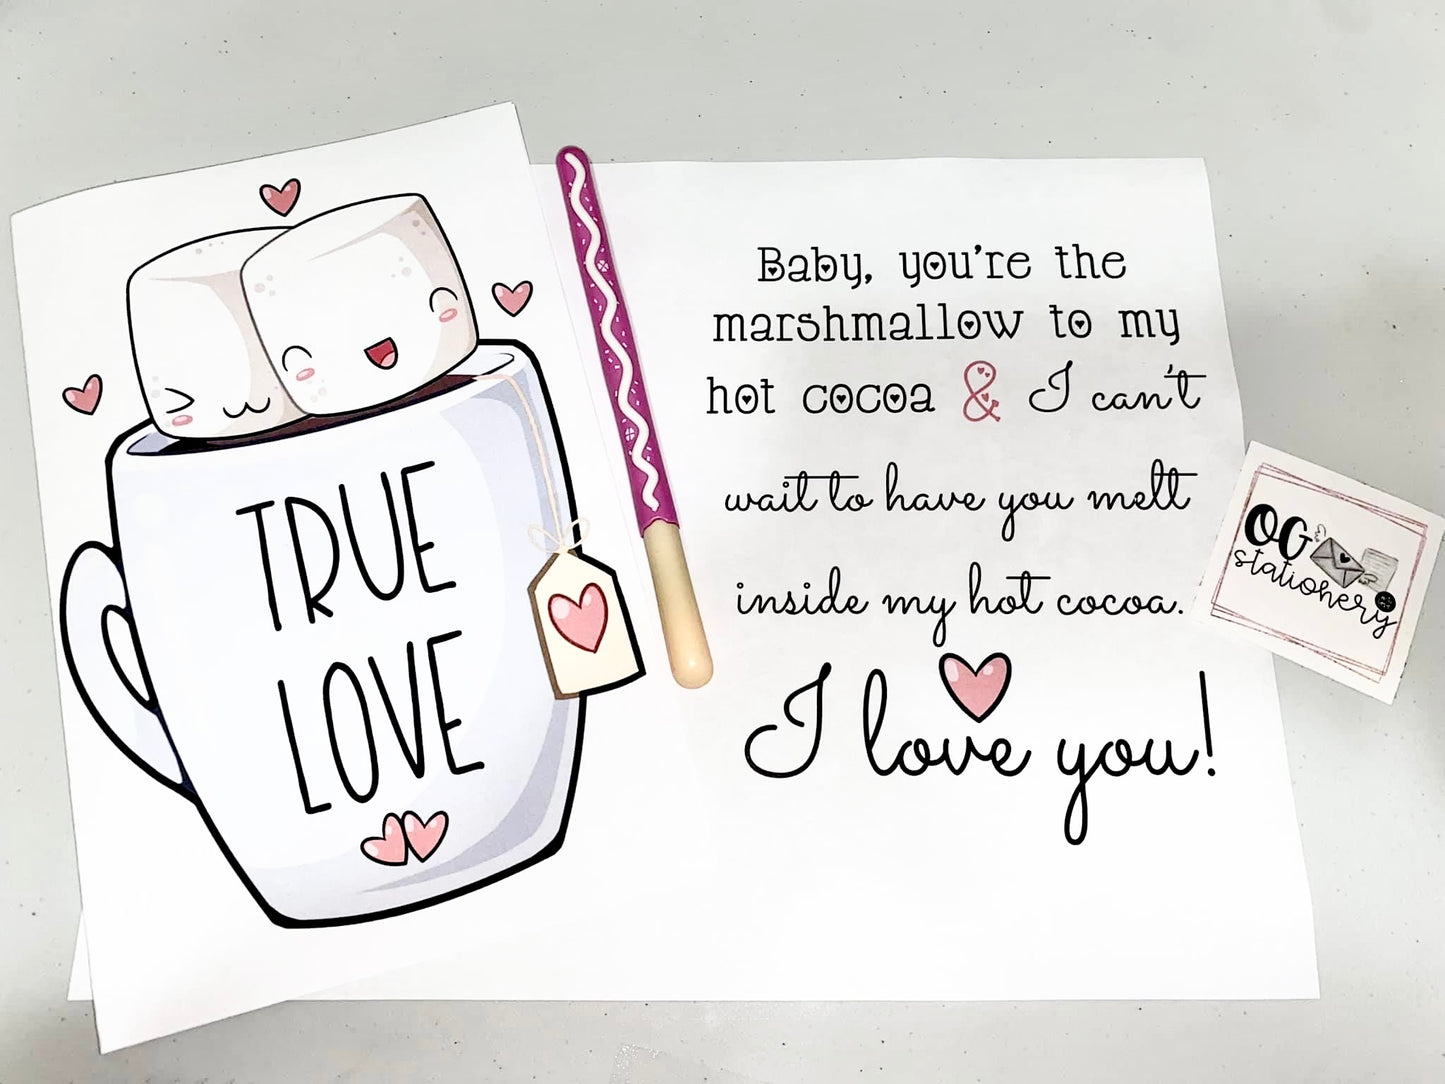 TRUE
LOVE
Baby, you're the
marshmallow to my
hot cocoa & I can't
wait to have you melt
inside my hot cocoa.
I love you!
OG
stationery